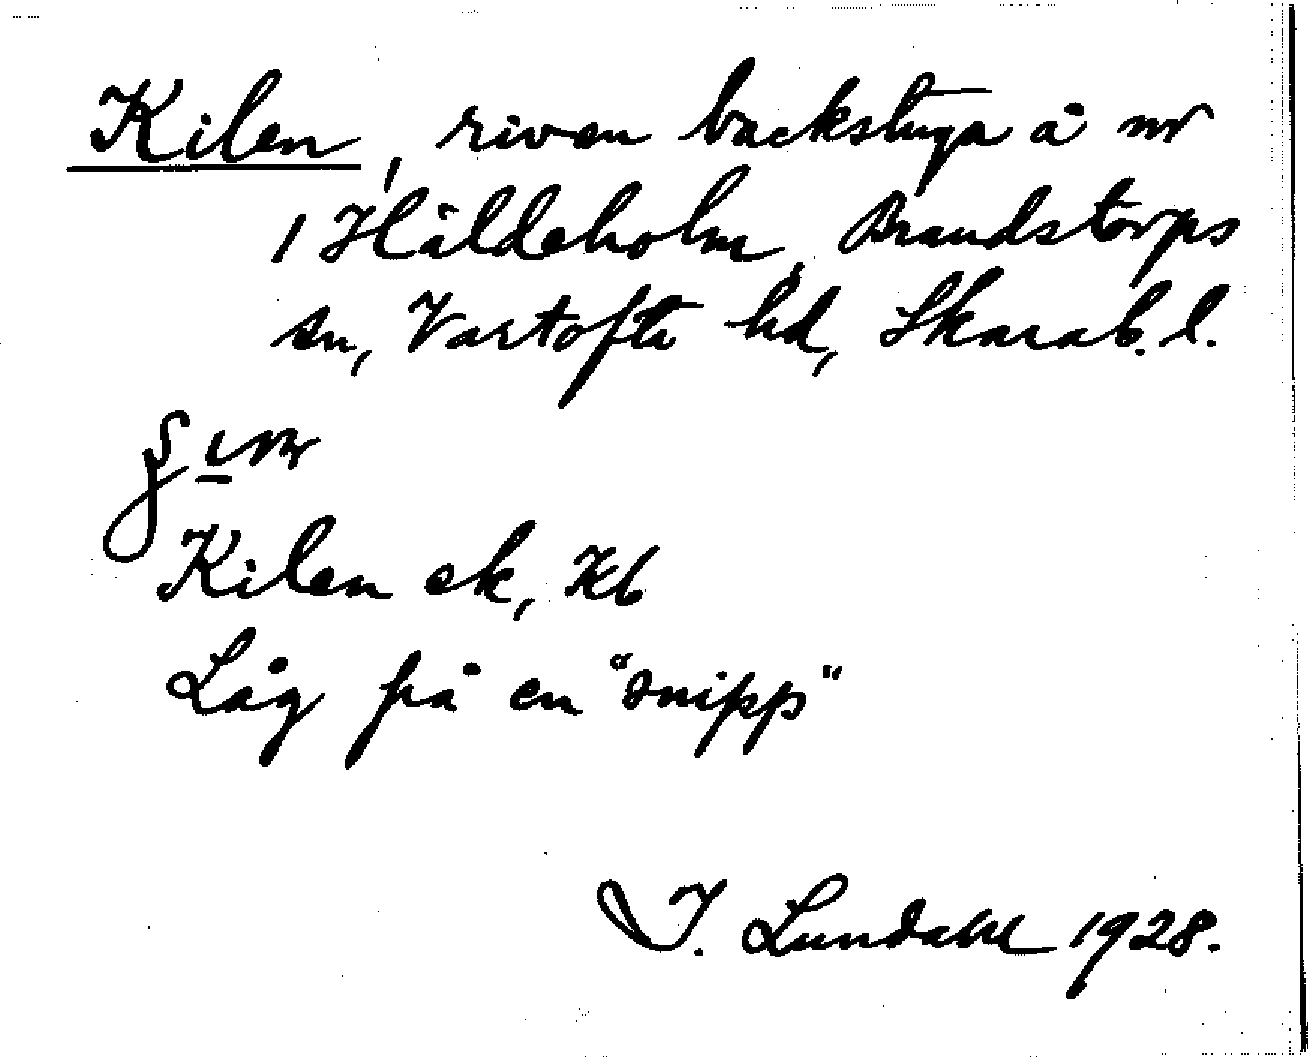 Kilen, riven backstuga å nr
1 Häldeholm, Brandstorps
sn, Vartofta hd, Skarab. l.
Kilen ek, Kb
Låg på en "snipp"
I. Lundahl 1928.